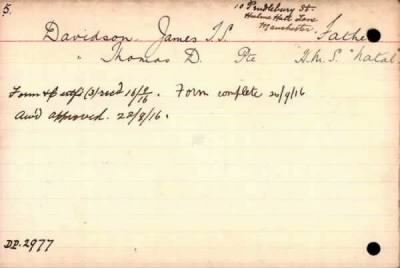 5.
10 Pendlebury St.
Hulme Hall Lane
Manchester.
Davidson James T.S. Father
" Thomas D. Pte H.M.S. "Natal"
Form & (3) rec'd 16/8/16. Form complete 20/9/16
Aw'd approved. 22/9/16.
DP.2977